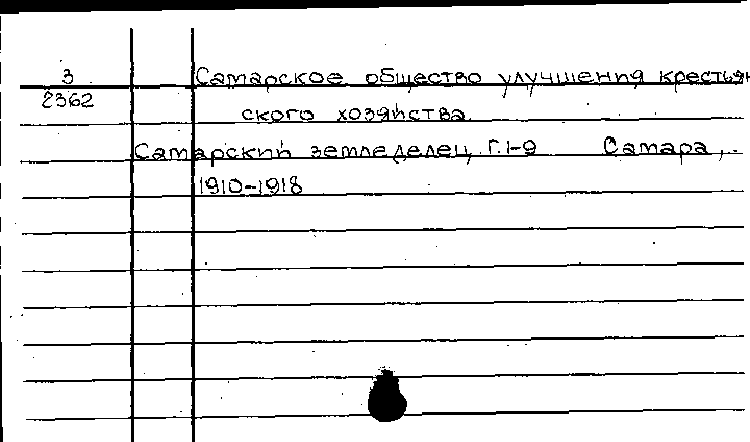 3 Самарское общество улучшения крестьян
2362
ского хозяйства.
Самарский земледелец, Г.1-9 Самара,
1910-1918